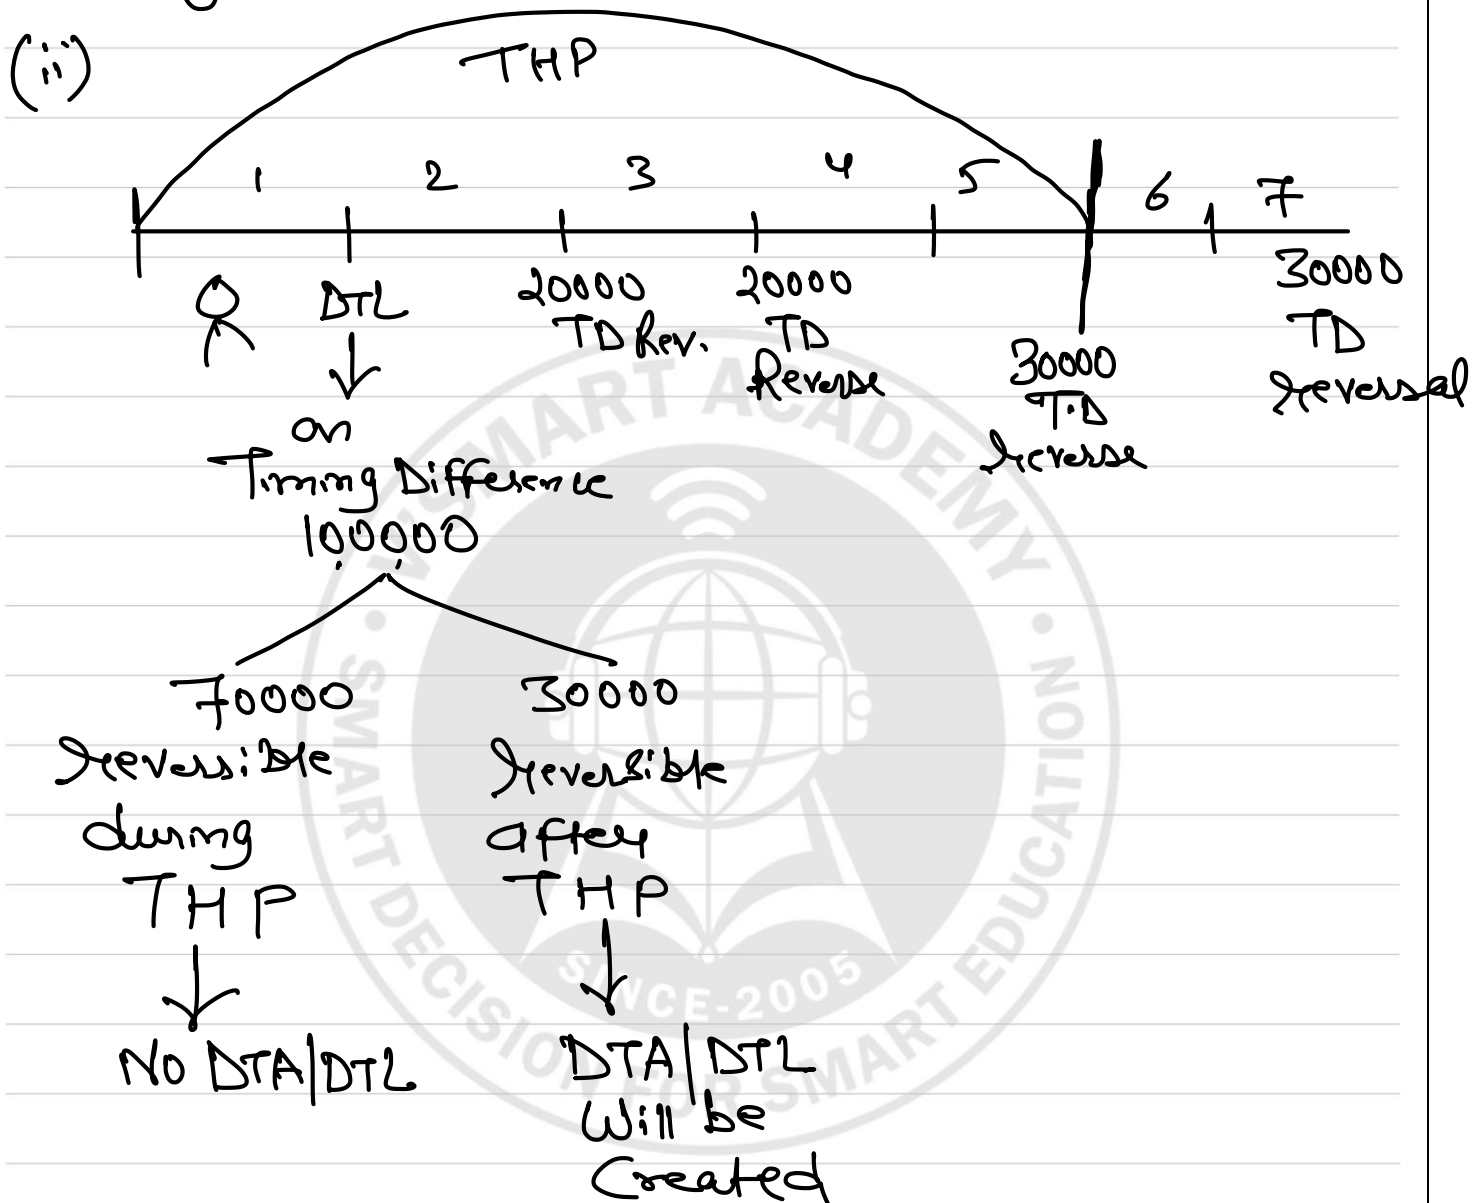 (ii)
THP
1 2 3 4 5 6 7
DTL
20000
TD Rev.
20000
TD
Reverse
30000
T.D
reverse
30000
TD
reversal
on
Timing Difference
1,00,000
70000
reverssible
during
THP
No DTA/DTL
30000
reversible
after
THP
DTA/DTL
Will be
Created
VSMART ACADEMY
SMART DECISION FOR SMART EDUCATION
SINCE-2005